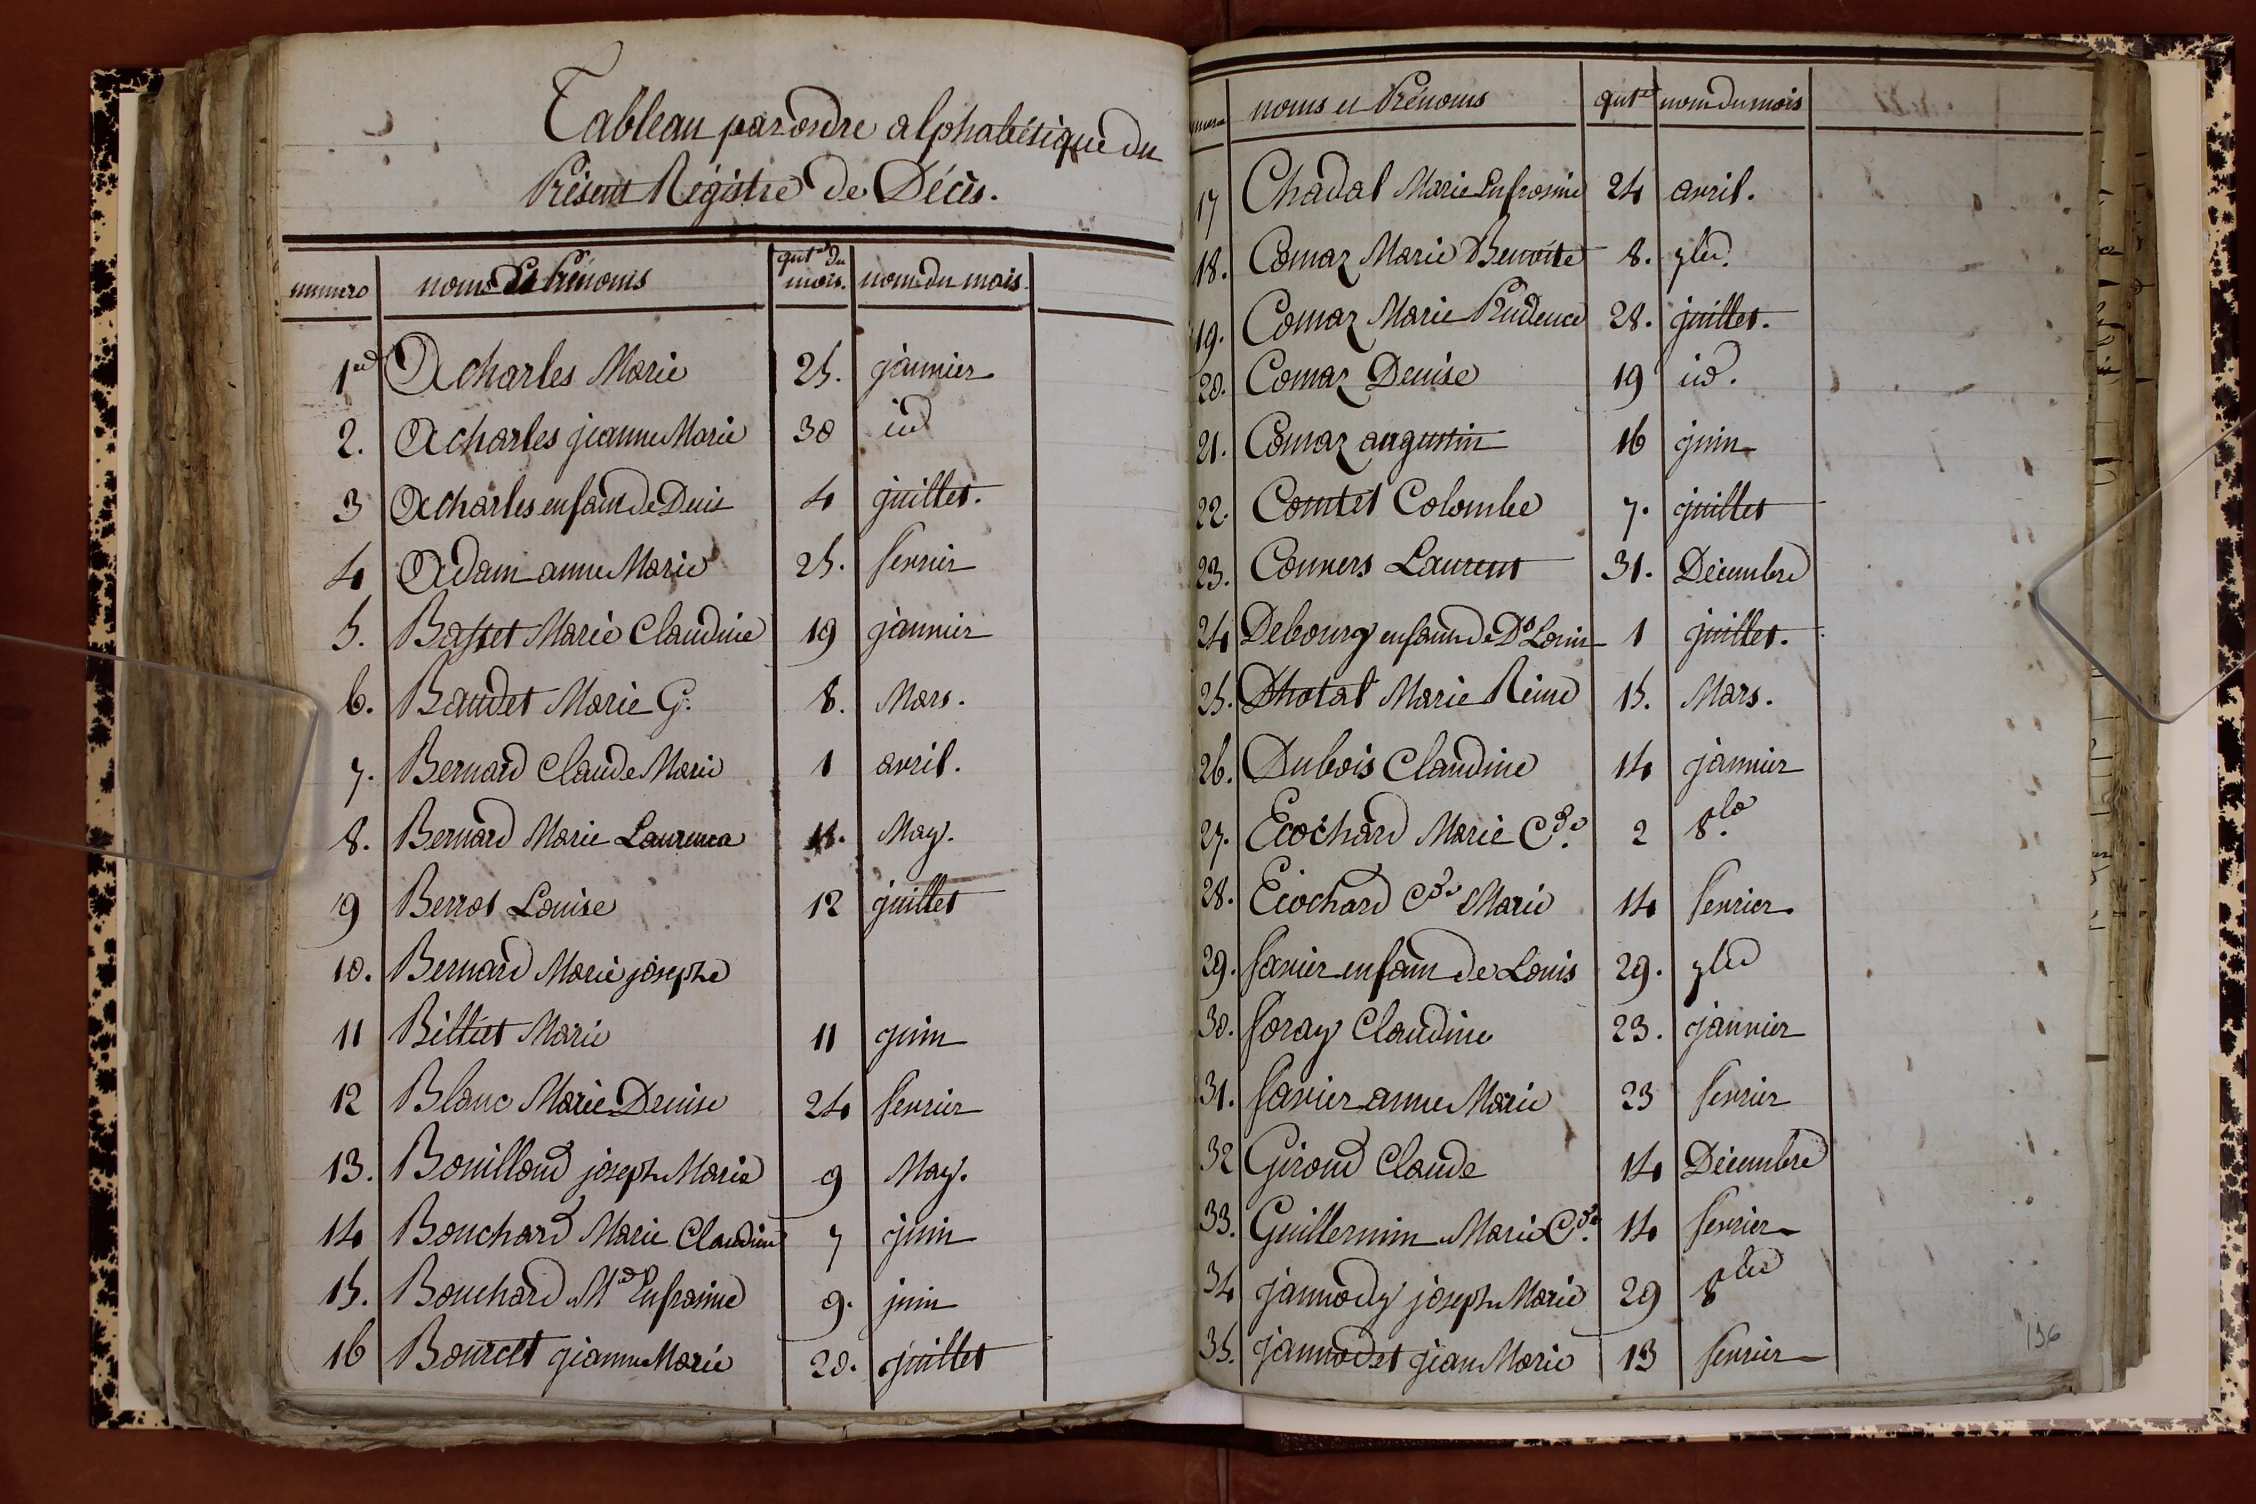 Tableau par ordre alphabétique du
Présent Régistre de Décès.
numero noms et Prénoms qut.e du mois. nom du mois
1er Acharles Marie 25. janvier
2. Acharles jeanne Marie 30 id
3 Acharles enfant de Denis 4 juillet.
4 Adam anne Marie 25. fevrier
5. Bastet Marie Claudine 19 janvier
6. Baudet Marie G. 8. Mars.
7. Bernard Claude Marie 1 avril.
8. Bernard Marie Laurence 11. May.
9 Berrot Louise 12 juillet
10. Bernard Marie josephe
11 Billiet Marie 11 juin
12 Blanc Marie Denise 24 fevrier
13. Bouilloud joseph Marie 9 May.
14 Bouchard Marie Claudine 7 juin
15. Bouchard Mie Eufrosine 9. juin
16 Bourcet jeanne Marie 20. juillet
numero noms et Prénoms qut.e nom du mois
17 Chadal Marie Eufrosine 24 avril.
18. Comaz Marie Benoite 8. 7bre.
19. Comaz Marie Prudence 28. juillet.
20. Comaz Denise 19 id.
21. Comaz augustin 16 juin
22. Comtet Colombe 7. juillet
23. Convers Laurent 31. Décembre
24 Debourg enfant de Ds Louis 1 juillet.
25. Dhotal Marie Reine 15. Mars.
26. Dubois Claudine 14 janvier
27. Ecochard Marie Cde. 2 8bre
28. Ecochard Cde Marie 14 fevrier
29. favier enfant de Louis 29. 7bre
30. foray Claudine 23. janvier
31. favier anne Marie 23 fevrier
32 Giroud Claude 14 Décembre
33. Guillermin Marie Cde. 14 fevrier
34 jannody joseph Marie 29 8bre
35. jannodet jean Marie 13 fevrier
136